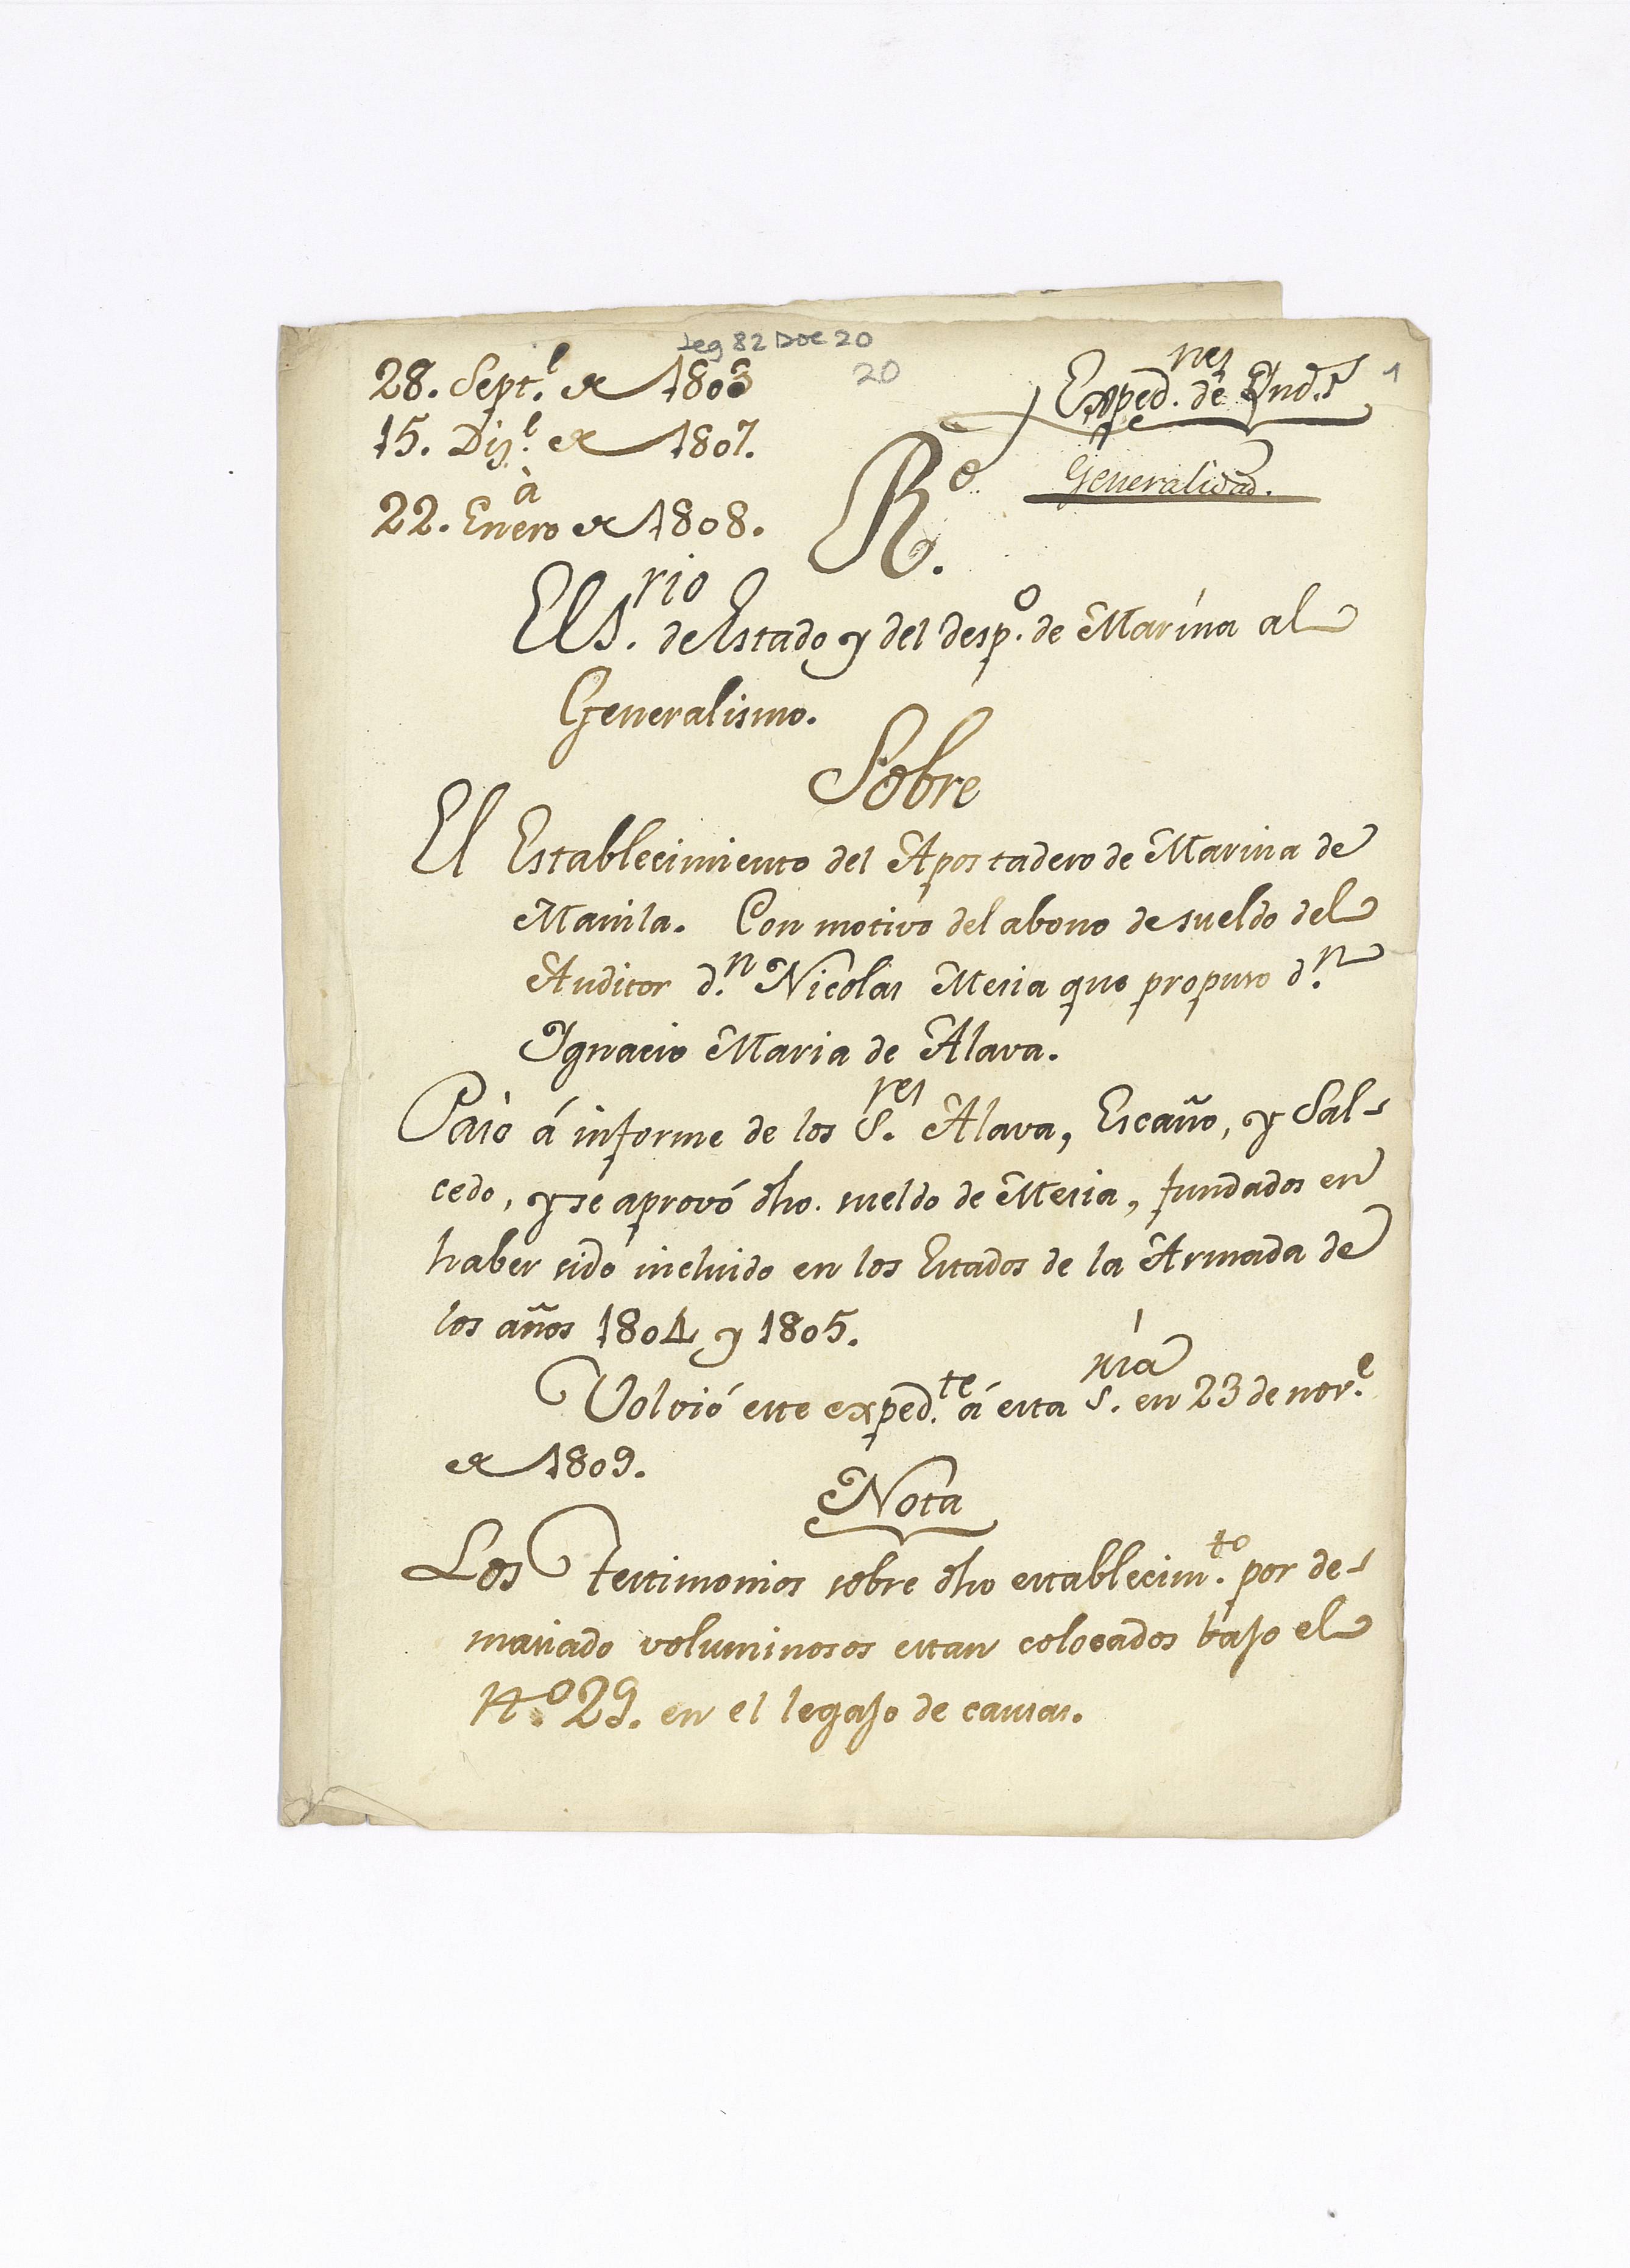 Leg 82 Doc 20
20
1
28. Sept.e de 1803
15. Diz.e de 1807.
à
22. Enero de 1808.
Exped.nes de Ynd.s
Generalidad.
R.e
El S.rio de Estado y del desp.o de Marina al
Generalismo.
Sobre
El Establecimiento del Apostadero de Marina de
Manila. Con motivo del abono de sueldo del
Auditor d.n Nicolas Mesia que propuso d.n
Ygnacio Maria de Alava.
Pasó á informe de los S.res Alava, Escaño, y Sal-
cedo, y se aprovó dho. sueldo de Mesia, fundados en
haber sido incluido en los Estados de la Armada de
los años 1804 y 1805.
Volvió este exped.te á esta S.ría en 23 de nov.e
de 1809.
Nota
Los testimonios sobre dho establecim.to por de-
masiado voluminosos estan colocados bajo el
N.o 29. en el legajo de causas.